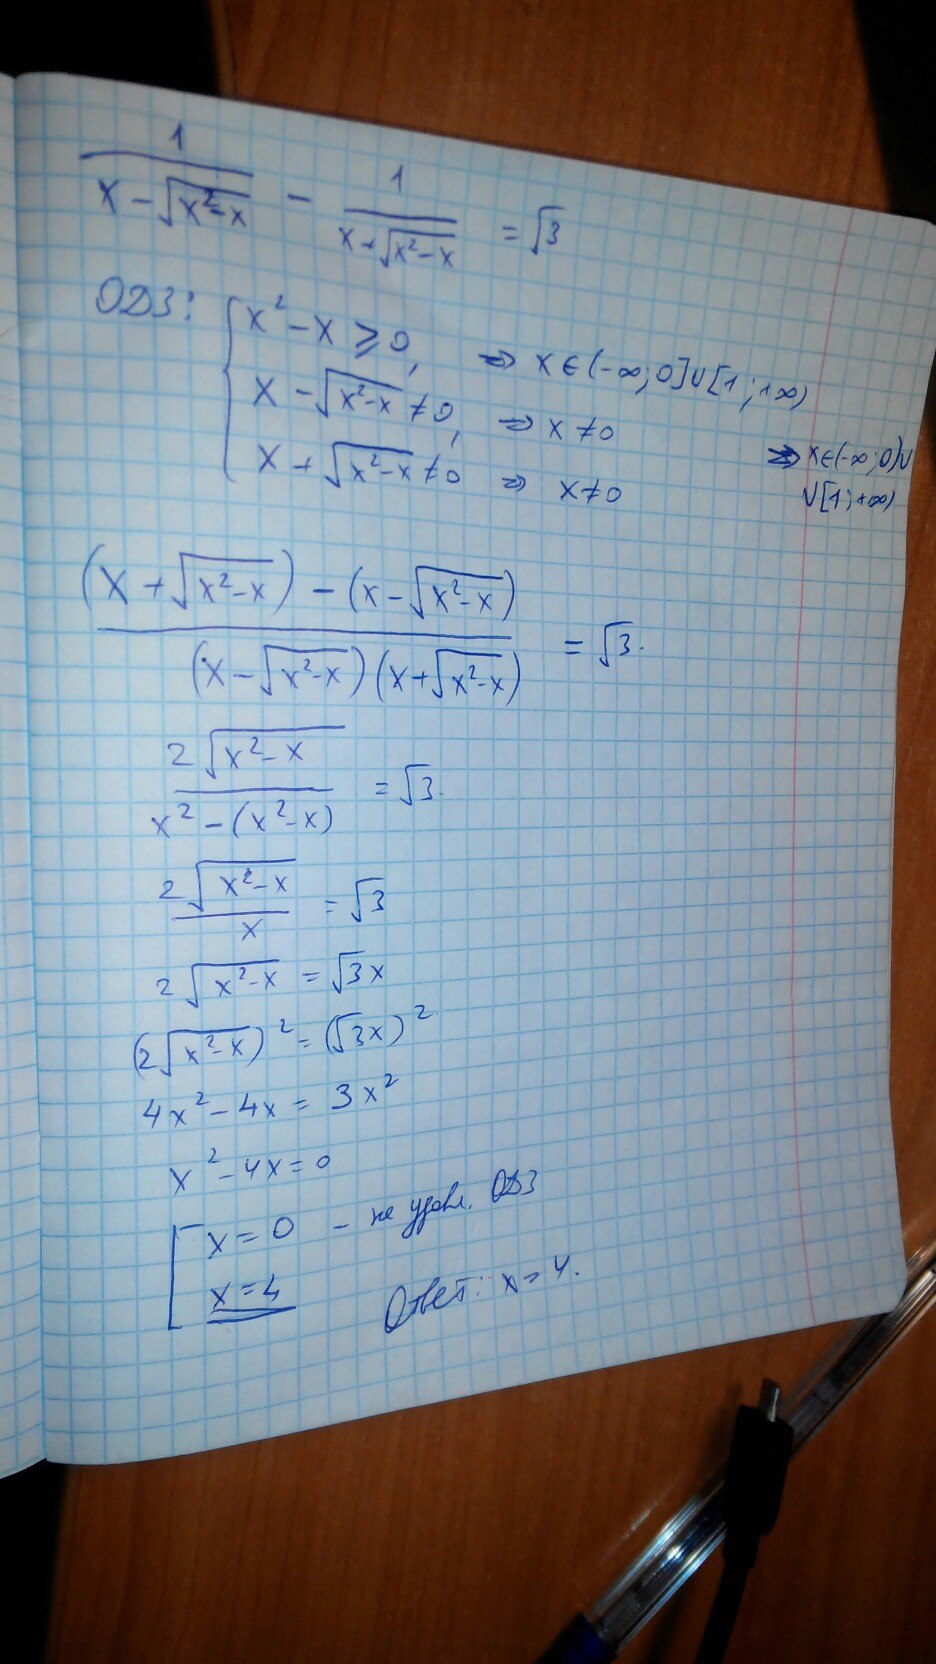 1/(x - √(x² - x)) - 1/(x + √(x² - x)) = √3
ОДЗ: { x² - x ⩾ 0, ⇒ x ∈ (-∞; 0] ∪ [1; +∞)
x - √(x² - x) ≠ 0, ⇒ x ≠ 0
x + √(x² - x) ≠ 0 ⇒ x ≠ 0
⇒ x ∈ (-∞; 0) ∪
∪ [1; +∞)
((x + √(x² - x)) - (x - √(x² - x)))/((x - √(x² - x))(x + √(x² - x))) = √3.
2√(x² - x)/(x² - (x² - x)) = √3.
2√(x² - x)/x = √3
2√(x² - x) = √3x
(2√(x² - x))² = (√3x)²
4x² - 4x = 3x²
x² - 4x = 0
[ x = 0 - не удовл. ОДЗ
x = 4
Ответ: x = 4.